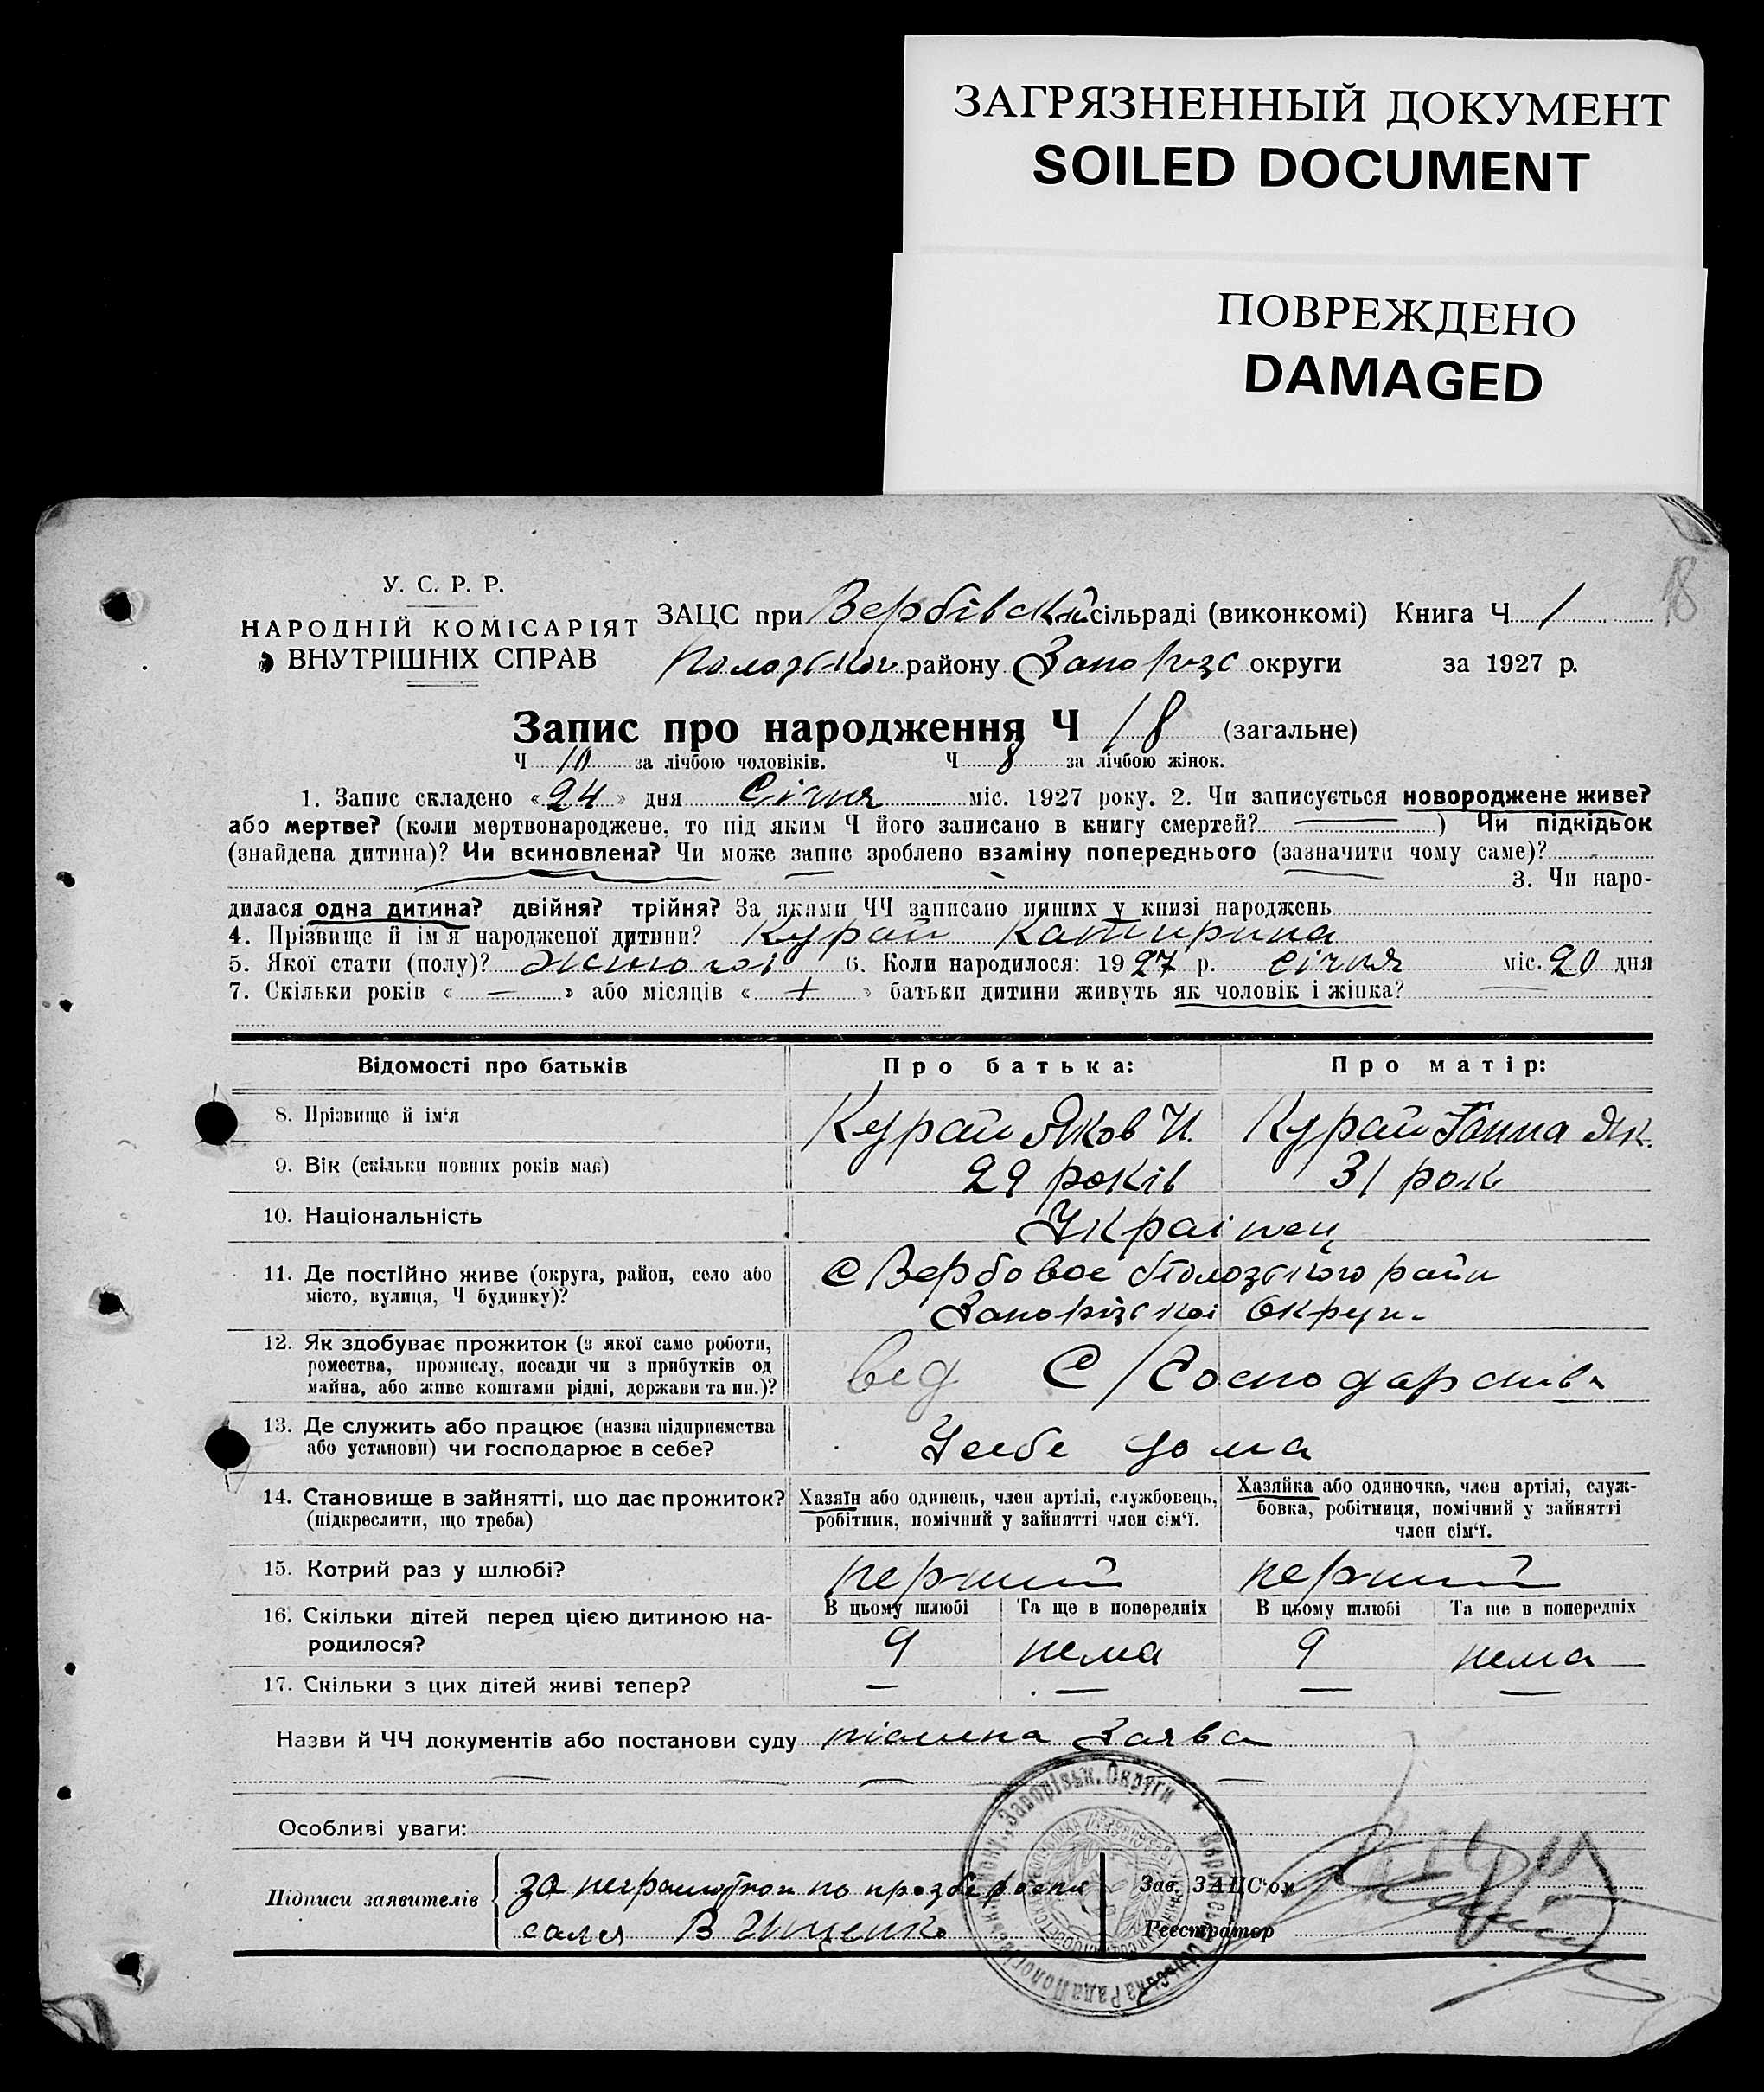 ЗАГРЯЗНЕННЫЙ ДОКУМЕНТ
SOILED DOCUMENT
ПОВРЕЖДЕНО
DAMAGED
18
У. С. Р. Р.
НАРОДНІЙ КОМІСАРІЯТ
ВНУТРІШНІХ СПРАВ
ЗАЦС при Вербівській сільраді (виконкомі) Книга Ч 1
району Запорізс округи за 1927 р.
Запис про народження Ч 18 (загальне)
Ч 10 за лічбою чоловіків. Ч 8 за лічбою жінок.
1. Запис складено «24» дня Січня міс. 1927 року. 2. Чи записується новороджене живе?
або мертве? (коли мертвонароджене, то під яким Ч його записано в книгу смертей? —) Чи підкідьок
(знайдена дитина)? Чи всиновлена? Чи може запис зроблено взаміну попереднього (зазначити чому саме)?
3. Чи наро-
дилася одна дитина? двійня? трійня? За якими ЧЧ записано инших у книзі народжень
4. Прізвище й ім'я народженої дитини? Курай Катирина
5. Якої стати (полу)? жіночої 6. Коли народилося: 1927 р. січня міс. 20 дня
7. Скільки років «—» або місяців «+» батьки дитини живуть як чоловік і жінка?
Відомості про батьків Про батька: Про матір:
8. Прізвище й ім'я Курай Яков И. Курай Ганна Як.
9. Вік (скільки повних років має) 29 років 31 рок
10. Національність Украінец
11. Де постійно живе (округа, район, село або місто, вулиця, Ч будинку)? С Вербовое Пологського райн
Запорізскоі Округи
12. Як здобуває прожиток (з якої саме роботи,
ремества, промислу, посади чи з прибутків од
майна, або живе коштами рідні, держави та ин.)? від С/Господарства
13. Де служить або працює (назва підприємства
або установи) чи господарює в себе? Усебе дома
14. Становище в зайнятті, що дає прожиток?
(підкреслити, що треба)
Хазяїн або одинець, член артілі, службовець,
робітник, помічний у зайнятті член сім'ї.
Хазяйка або одиночка, член артілі, служ-
бовка, робітниця, помічний у зайнятті
член сім'ї.
15. Котрий раз у шлюбі? перший перший
В цьому шлюбі Та ще в попередніх В цьому шлюбі Та ще в попередніх
16. Скільки дітей перед цією дитиною на-
родилося? 9 нема 9 нема
17. Скільки з цих дітей живі тепер? — — — —
Назви й ЧЧ документів або постанови суду Заява
Особливі уваги:
Підписи заявителів за неграмотного по
В Іщенко
Зав. ЗАЦС'ом
Реєстратор
Запорізьк. Округи